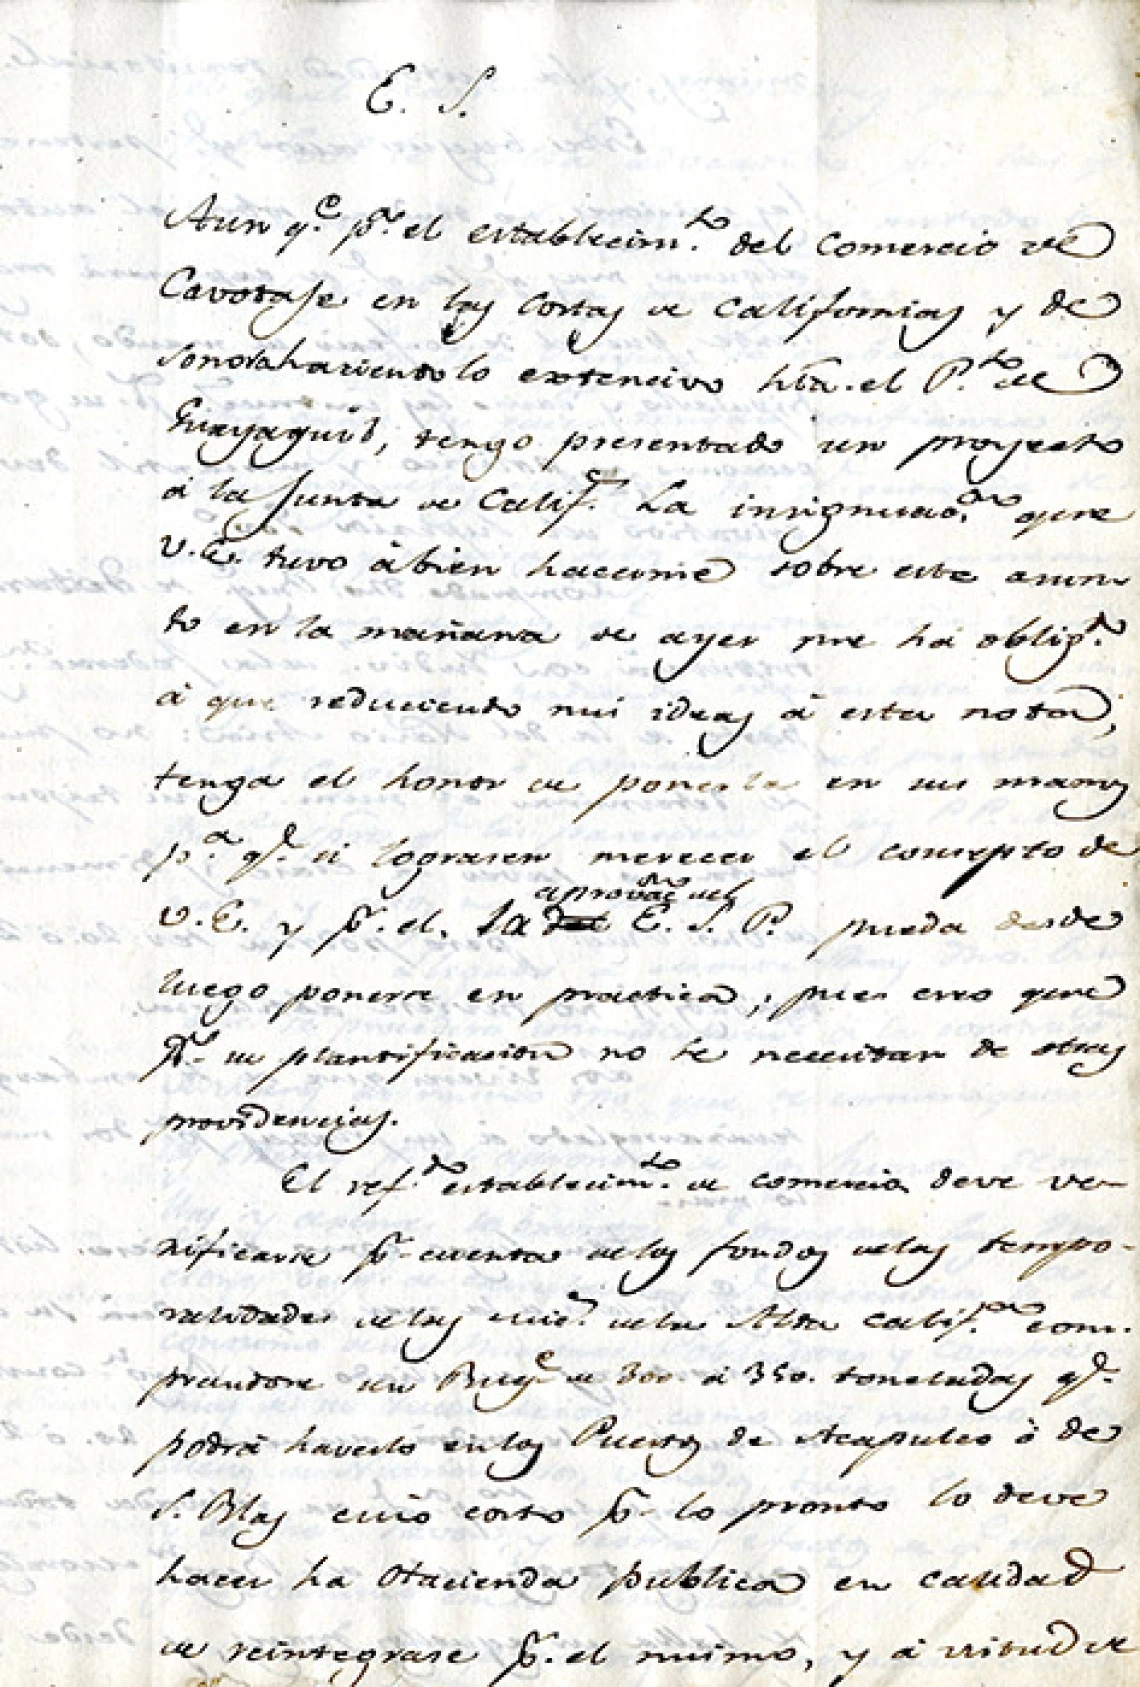 E. S.
Aun q.e p.r el establecim.to del Comercio de
Cavotaje en las Costas de Californias y de
Sonora haciendolo extencivo hta. el P.to de
Guayaquil, tengo presentado un proyecto
á la Junta de Calif.s La insignuac.on que
V.E. tuvo ábien hacerme sobre este asun
to en la mañana de ayer me há oblig.do
á que reduciendo mis ideas á esta nota,
tenga el honor de ponerla en sus manos
p.a q.e si lograsen merecer el concepto de
V.E. y p.r el. la aprovac.on del E. S. P. pueda desde
luego ponerse en practica, pues creo que
p.a su plantificacion no se necesitan de otras
providencias.
El ref.do establecim.to de comercio deve ve-
rificarse p.r cuenta de los fondos de las tempo-
ralidades de las mis.s de la Alta Calif.a com-
prandose un Buq.e de 300. á 350. toneladas q.e
podrá haverlo en los Puertos de Acapulco ó de
S. Blas cuio costo p.r lo pronto lo deve
hacer la Hacienda publica en calidad
de reintegrase p.r el mismo, y á virtud de